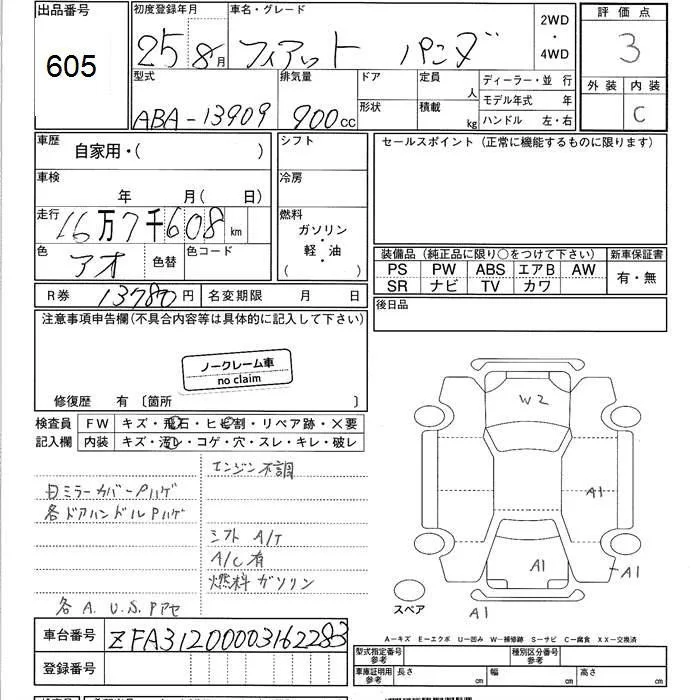 出品番号 初度登録年月 車名・グレード 2WD 評価点
605 25 8月 フィアット パンダ ・ 3
4WD
型式 排気量 ドア 定員 人 ディーラー・並 行 外装 内装
ABA-13909 900cc 形状 積載 kg モデル年式 年 C
ハンドル 左・右
車歴 自家用・( ) シフト セールスポイント (正常に機能するものに限ります)
車検 年 月( 日) 冷房
走行 16万7千608km 燃料 ガソリン
・
軽・油
( )
色 アオ 色替 色コード
装備品 (純正品に限り○をつけて下さい) 新車保証書
PS PW ABS エアB AW 有・無
SR ナビ TV カワ
R券 13780円 名変期限 月 日 後日品
注意事項申告欄(不具合内容等は具体的に記入して下さい)
ノークレーム車
no claim
修復歴 有 〔箇所 〕
検査員 FW キズ・飛石・ヒビ割・リペア跡・×要
記入欄 内装 キズ・汚レ・コゲ・穴・スレ・キレ・破レ
エンジン不調
日ミラーカバーPハゲ
各ドアハンドルPハゲ
シフト A/T
A/C有
燃料 ガソリン
各A.U.S.Pアセ
W2
A1
A1
A1
A1
スペア
A―キズ E―エクボ U―凹み W―補修跡 S―サビ C―腐食 XX―交換済
車台番号 ZFA31200003162283
登録番号
型式指定番号 参考 種別区分番号 参考
車庫証明用 参考 長さ cm 幅 cm 高さ cm